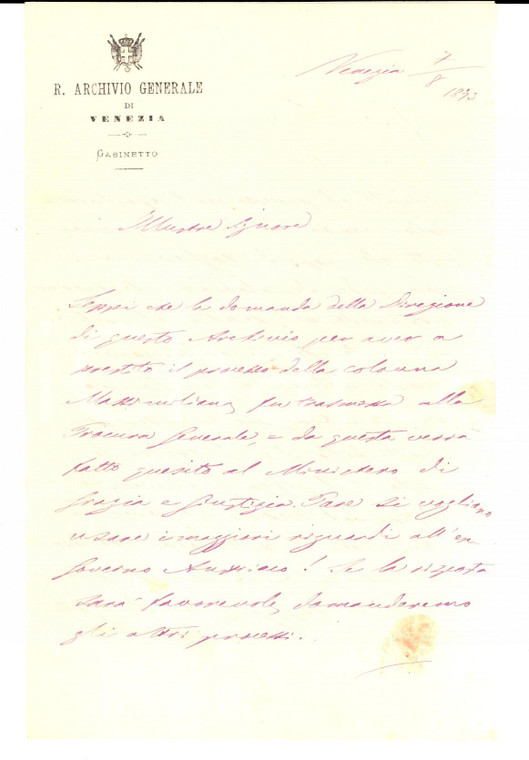 R. ARCHIVIO GENERALE
DI
VENEZIA
GABINETTO
Venezia 7/8
1873
Illustre Signore
Seppi che la domanda della Direzione
di questo Archivio per aver a
prestito il processo della colonna
Massimiliana, fu trasmessa alla
Procura Generale, e da questa verrà
fatto quesito al Ministero di
Grazia e Giustizia. Pare si vogliano
usare i maggiori riguardi all'ex
Governo Austriaco! Se la risposta
sarà favorevole, domanderemo
gli altri processi.